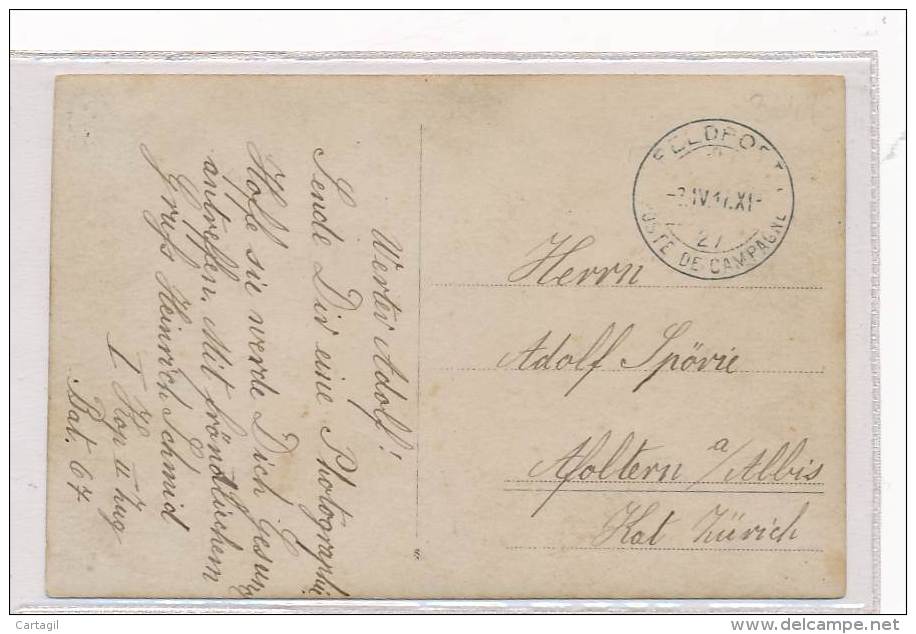 Werter Adolf!
Sende Dir eine Photographie
Hofe sie werde Dich gesund
antrefen. Mit fröndlichem
Gruss Heinrich Schmid
I Kop II Zug
Bat. 67
FELDPOST
IV.17.XI-
27
POSTE DE CAMPAGNE
Herrn
Adolf Spörie
Afoltern a/Albis
Kat Zürich
Cartagil
www.delcampe.net